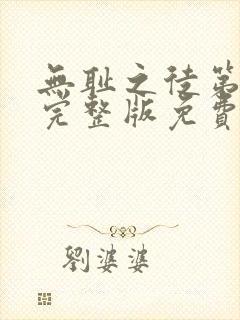 無耻之徒第
完整版免費
劉婆婆